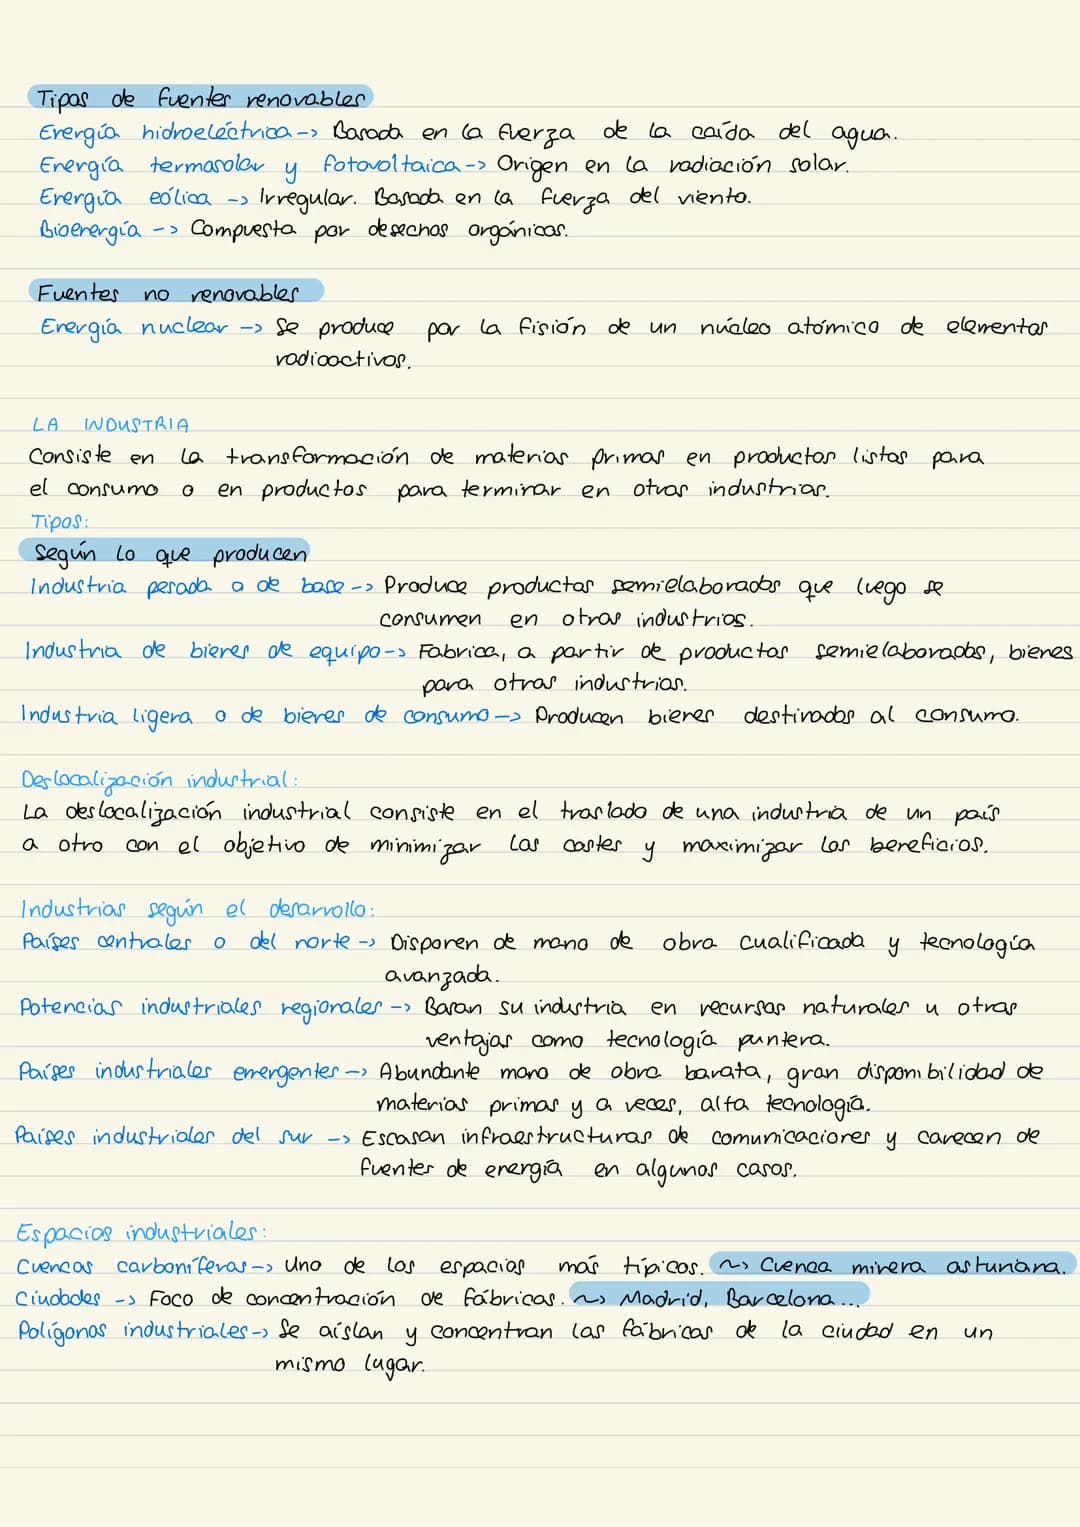 Tipos de fuentes renovables
Energía hidroeléctrica -> Basada en la fuerza de la caída del agua.
Energía termosolar y fotovoltaica -> Origen en la radiación solar.
Energía eólica -> Irregular. Basada en la fuerza del viento.
Bioenergía -> Compuesta por desechos orgánicos.
Fuentes no renovables
Energía nuclear -> Se produce por la fisión de un núcleo atómico de elementos
radioactivos.
LA INDUSTRIA
Consiste en la transformación de materias primas en productos listos para
el consumo o en productos para terminar en otras industrias.
Tipos:
Según lo que producen
Industria pesada o de base -> Produce productos semielaborados que luego se
consumen en otras industrias.
Industria de bienes de equipo -> Fabrica, a partir de productos semielaborados, bienes
para otras industrias.
Industria ligera o de bienes de consumo -> Producen bienes destinados al consumo.
Deslocalización industrial:
La deslocalización industrial consiste en el traslado de una industria de un país
a otro con el objetivo de minimizar los costes y maximizar los beneficios.
Industrias según el desarrollo:
Países centrales o del norte -> Disponen de mano de obra cualificada y tecnología
avanzada.
Potencias industriales regionales -> Basan su industria en recursos naturales u otras
ventajas como tecnología puntera.
Países industriales emergentes -> Abundante mano de obra barata, gran disponibilidad de
materias primas y a veces, alta tecnología.
Países industriales del sur -> Escasan infraestructuras de comunicaciones y carecen de
fuentes de energía en algunos casos.
Espacios industriales:
Cuencas carboníferas -> Uno de los espacios más típicos. ~> Cuenca minera asturiana.
Ciudades -> Foco de concentración de fábricas. ~> Madrid, Barcelona...
Polígonos industriales -> Se aíslan y concentran las fábricas de la ciudad en un
mismo lugar.